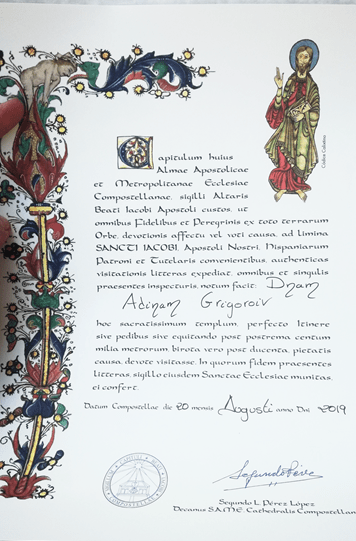 Codex Calixtino
Capitulum huius
Almae Apostolicae
et Metropolitanae Ecclesiae
Compostellanae, sigilli Altaris
Beati Iacobi Apostoli custos, ut
omnibus Fidelibus et Peregrinis ex toto terrarum
Orbe, devotionis affectu vel voti causa, ad limina
SANCTI IACOBI, Apostoli Nostri, Hispaniarum
Patroni et Tutelaris convenientibus, authenticas
visitationis litteras expediat, omnibus et singulis
praesentes inspecturis, notum facit: Dnam
Adinam Grigoroiv
hoc sacratissimum templum, perfecto Itinere
sive pedibus sive equitando post postrema centum
milia metrorum, birota vero post ducenta, pietatis
causa, devote visitasse. In quorum fidem praesentes
litteras, sigillo eiusdem Sanctae Ecclesiae munitas,
ei confert.
Datum Compostellae die 20 mensis Augusti anno Dni 2019
Segundo L. Pérez López
Decanus S.A.M.E. Cathedralis Compostellan